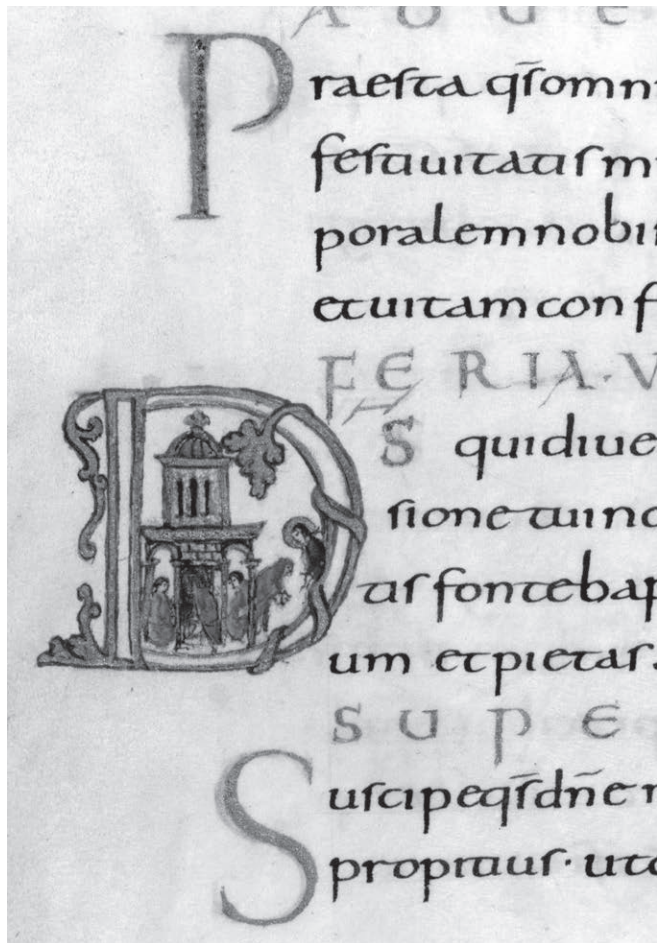 A D U E
Praesta qs̄ omni
festiuitatis m
poralem nobi
et uitam conf
FERIA · V
DS qui diue
sione tui no
tis fonte bap
um et pietas.
SUPE
Suscipe qs̄ dn̄e
propitius · ut